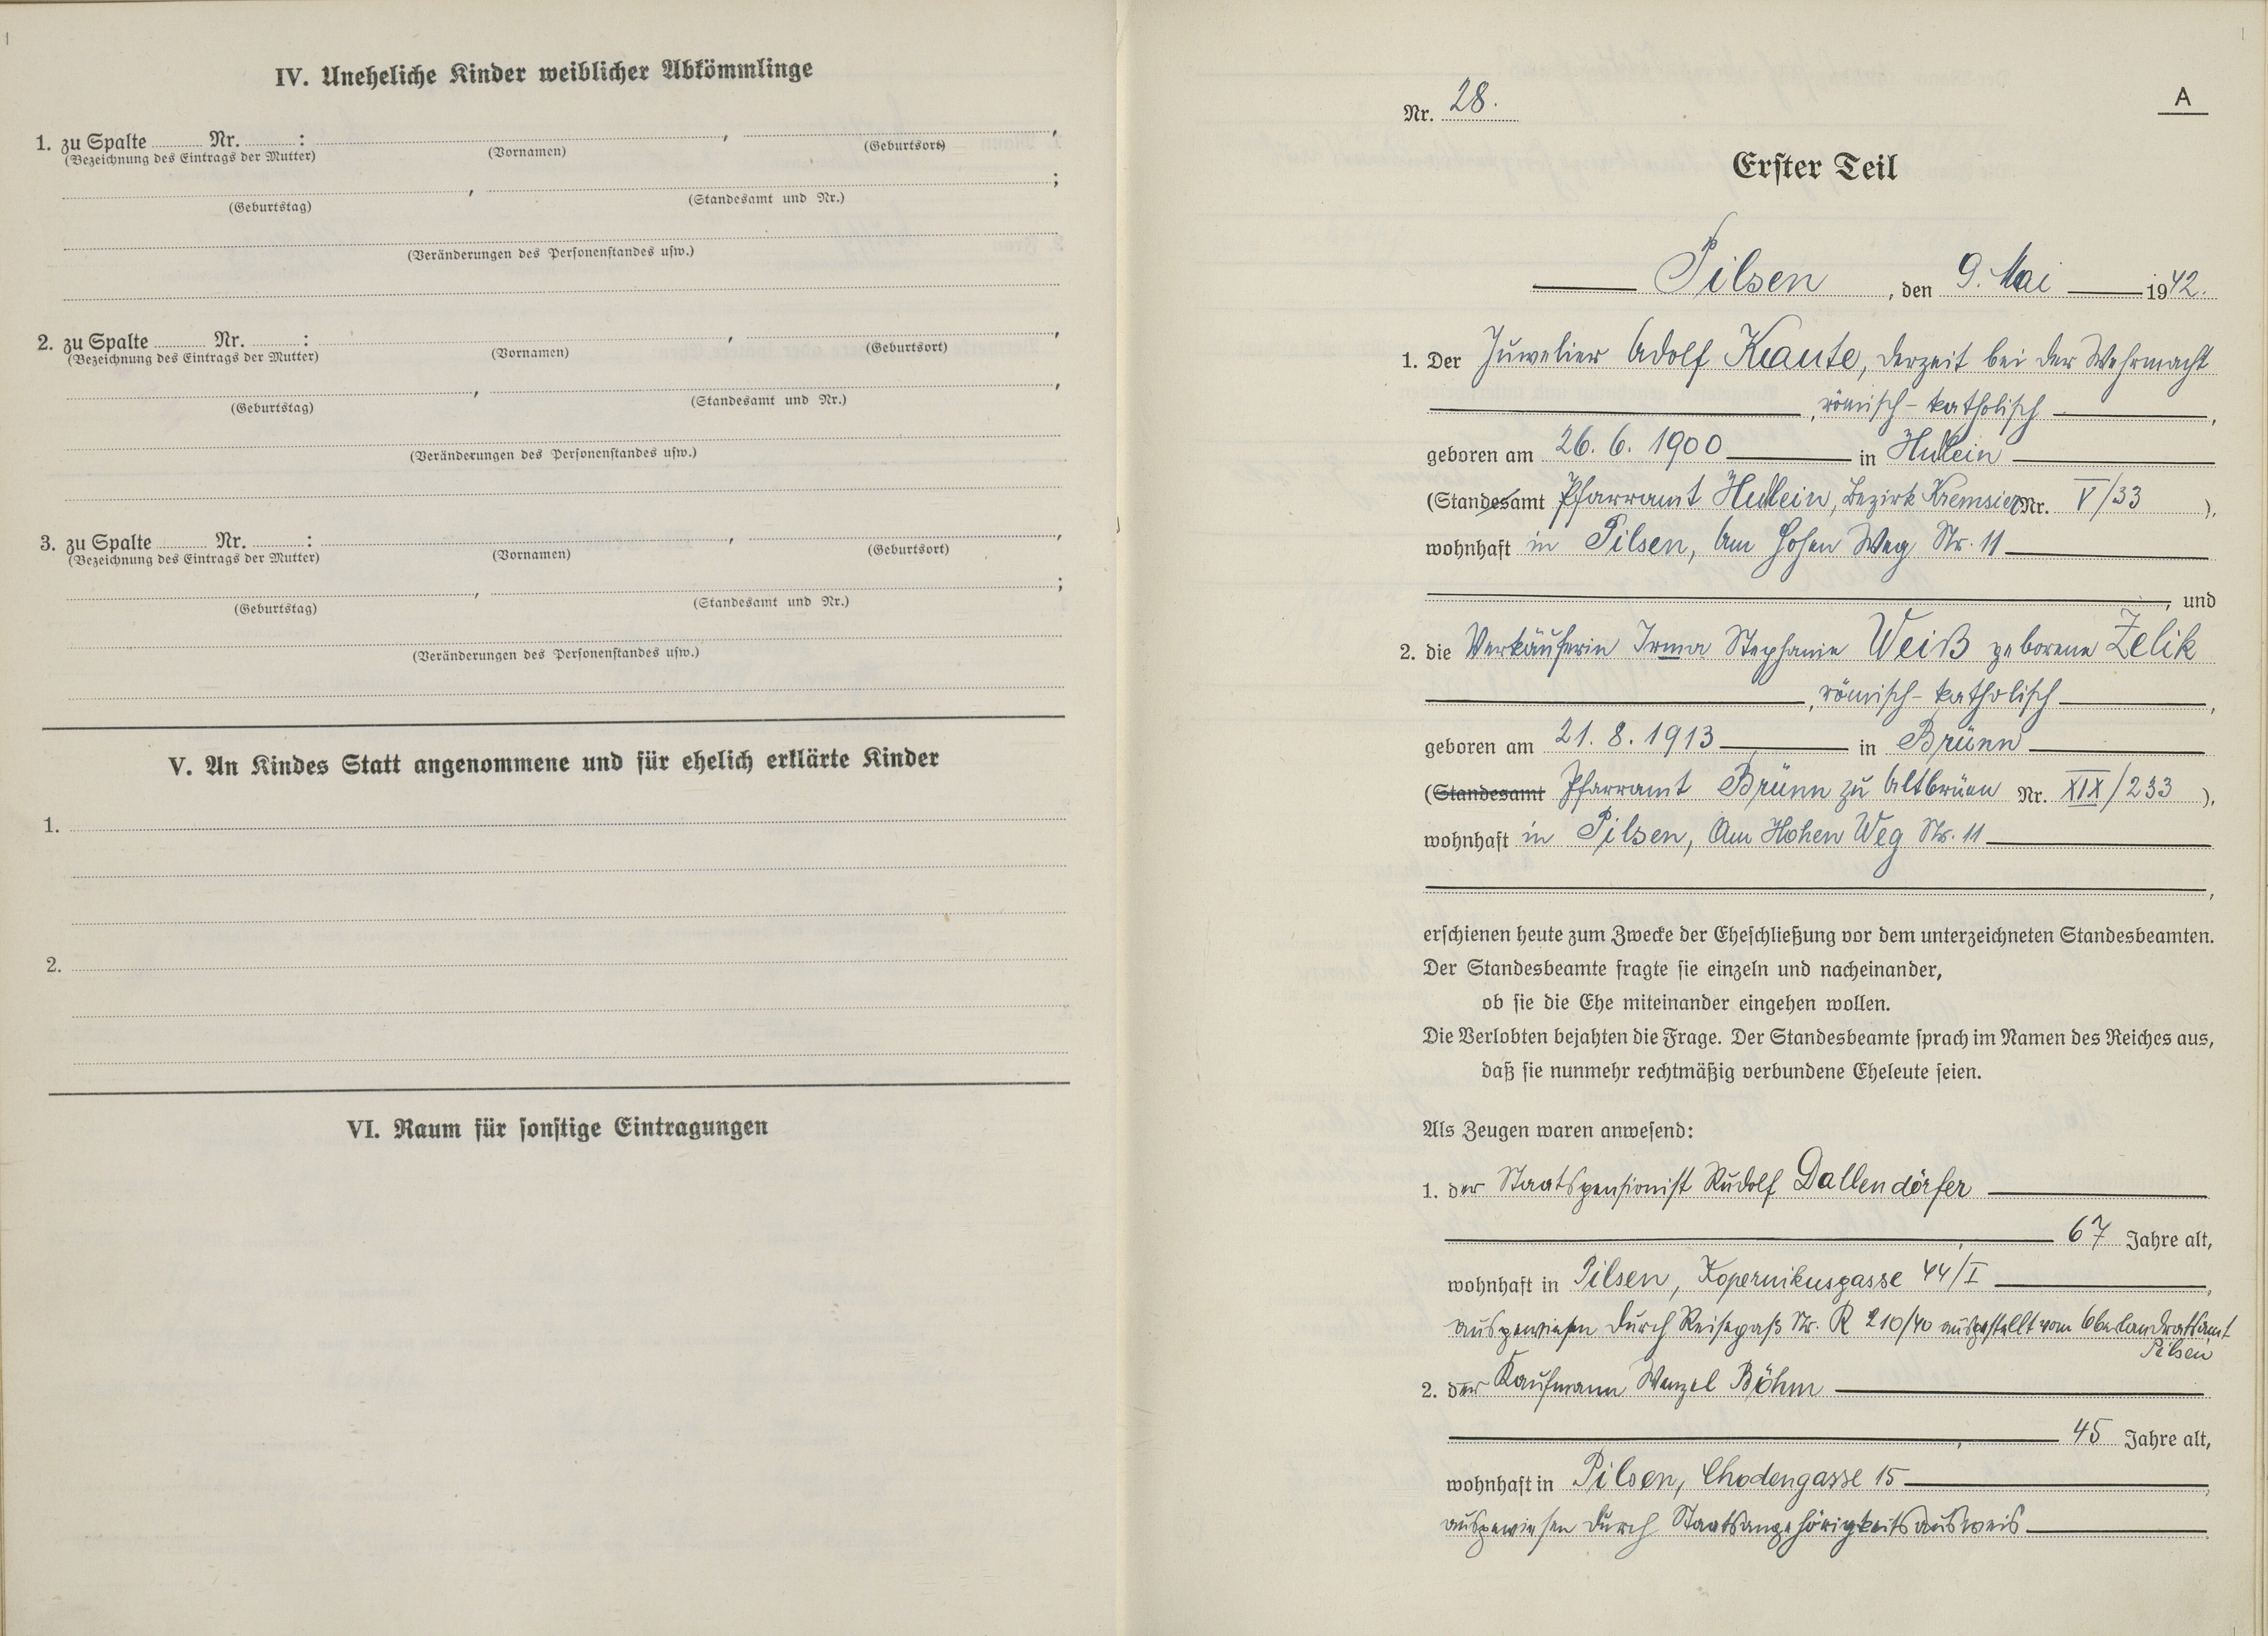 IV. Uneheliche Kinder weiblicher Abkömmlinge
1. zu Spalte ........ Nr. ........ : ........ , ........ ,
(Bezeichnung des Eintrags der Mutter) (Vornamen) (Geburtsort)
........ , ........ ;
(Geburtstag) (Standesamt und Nr.)
(Veränderungen des Personenstandes usw.)
2. zu Spalte ........ Nr. ........ : ........ , ........ ,
(Bezeichnung des Eintrags der Mutter) (Vornamen) (Geburtsort)
........ , ........ ,
(Geburtstag) (Standesamt und Nr.)
(Veränderungen des Personenstandes usw.)
3. zu Spalte ........ Nr. ........ : ........ , ........ ,
(Bezeichnung des Eintrags der Mutter) (Vornamen) (Geburtsort)
........ , ........ ;
(Geburtstag) (Standesamt und Nr.)
(Veränderungen des Personenstandes usw.)
V. An Kindes Statt angenommene und für ehelich erklärte Kinder
1.
2.
VI. Raum für sonstige Eintragungen
Nr. 28.
A
Erster Teil
Pilsen, den 9. Mai 1942.
1. Der Juwelier Adolf Kraute, derzeit bei der Wehrmacht
, römisch-katholisch ,
geboren am 26. 6. 1900 in Hullein
(Standesamt Pfarramt Hullein, Bezirk Kremsier Nr. V/33 ),
wohnhaft in Pilsen, Am Hohen Weg Nr. 11
, und
2. die Verkäuferin Irma Stephanie Weiß geborene Zelik
, römisch-katholisch ,
geboren am 21. 8. 1913 in Brünn
(Standesamt Pfarramt Brünn zu Altbrünn Nr. XIX/233 ),
wohnhaft in Pilsen, Am Hohen Weg Nr. 11
,
erschienen heute zum Zwecke der Eheschließung vor dem unterzeichneten Standesbeamten.
Der Standesbeamte fragte sie einzeln und nacheinander,
ob sie die Ehe miteinander eingehen wollen.
Die Verlobten bejahten die Frage. Der Standesbeamte sprach im Namen des Reiches aus,
daß sie nunmehr rechtmäßig verbundene Eheleute seien.
Als Zeugen waren anwesend:
1. der Staatspensionist Rudolf Dallendörfer
, 67 Jahre alt,
wohnhaft in Pilsen, Kopernikusgasse 44/I ,
ausgewiesen durch Reisepaß Nr. R 210/40 ausgestellt vom Oberlandratsamt
Pilsen
2. der Kaufmann Wenzel Böhm
, 45 Jahre alt,
wohnhaft in Pilsen, Chodengasse 15 ,
ausgewiesen durch Staatsangehörigkeitsausweis .